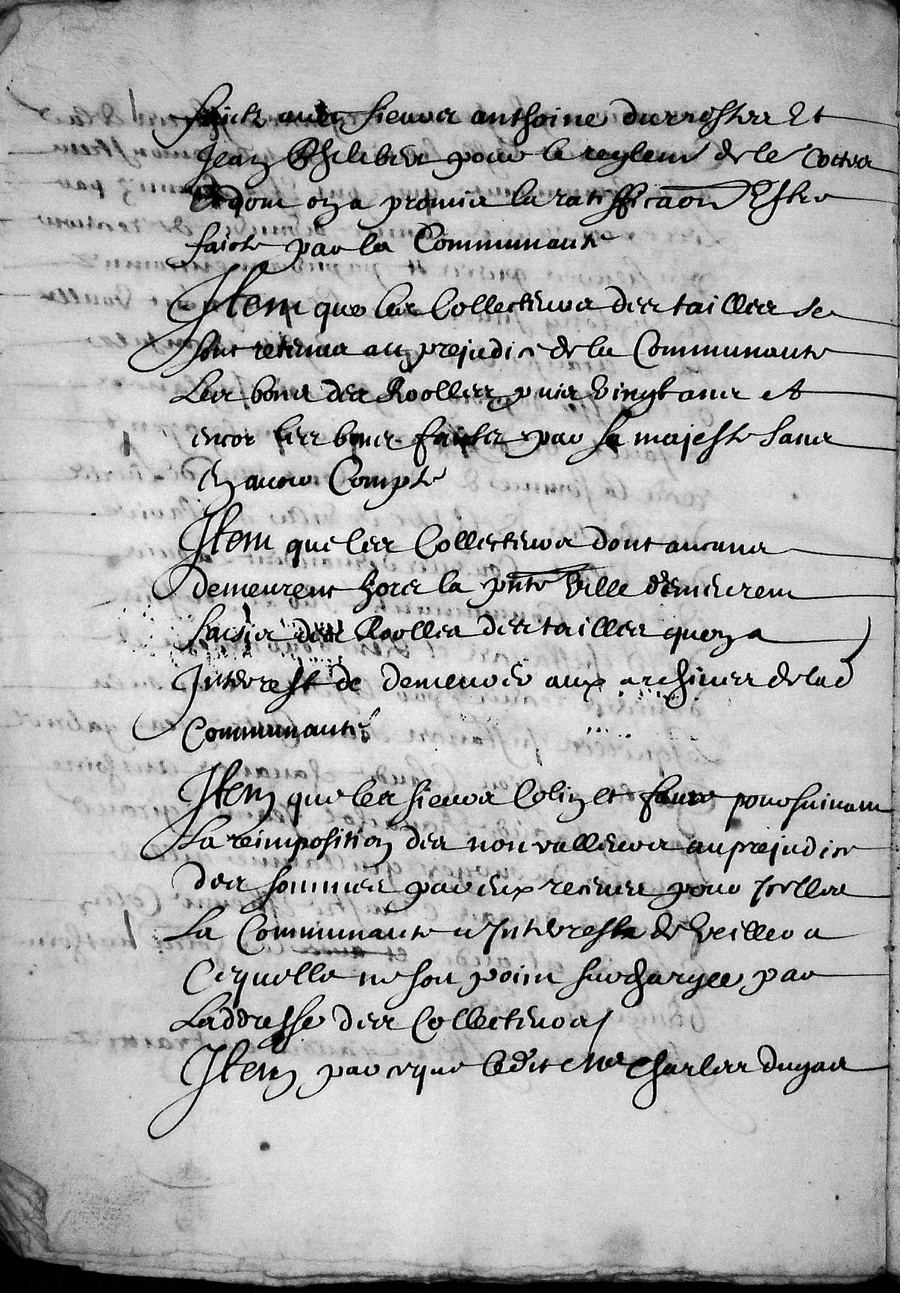 faict avec sieurs anthoine durostre Et
Jean Philibert pour le reglem de le
dont on a promis la ratifficaon Estre
faicte par la Communaute
Item que les Collecteurs des tailles se
sont retenus au prejudice de la Communaute
Les bons des Roolles puis vingt ans et
encor les bons faictz par sa majeste sans
En avoir Compte
Item que les Collecteurs dont aucuns
demeurent hors la pnte Ville demeurent
saisis des Roolles des tailles quon a
Interest de demender aux archives de lad
Communaute
Item que les sieurs Colin et faure poursuivant
La reimposition des non valleurs au prejudice
des sommes par eux receues pour Icelles
La Communaute a Interestz de Veiller a
Ce quelle ne soit point surchargee par
Laddresse des Collecteurs
Item par ce que ledit me Charles dugas